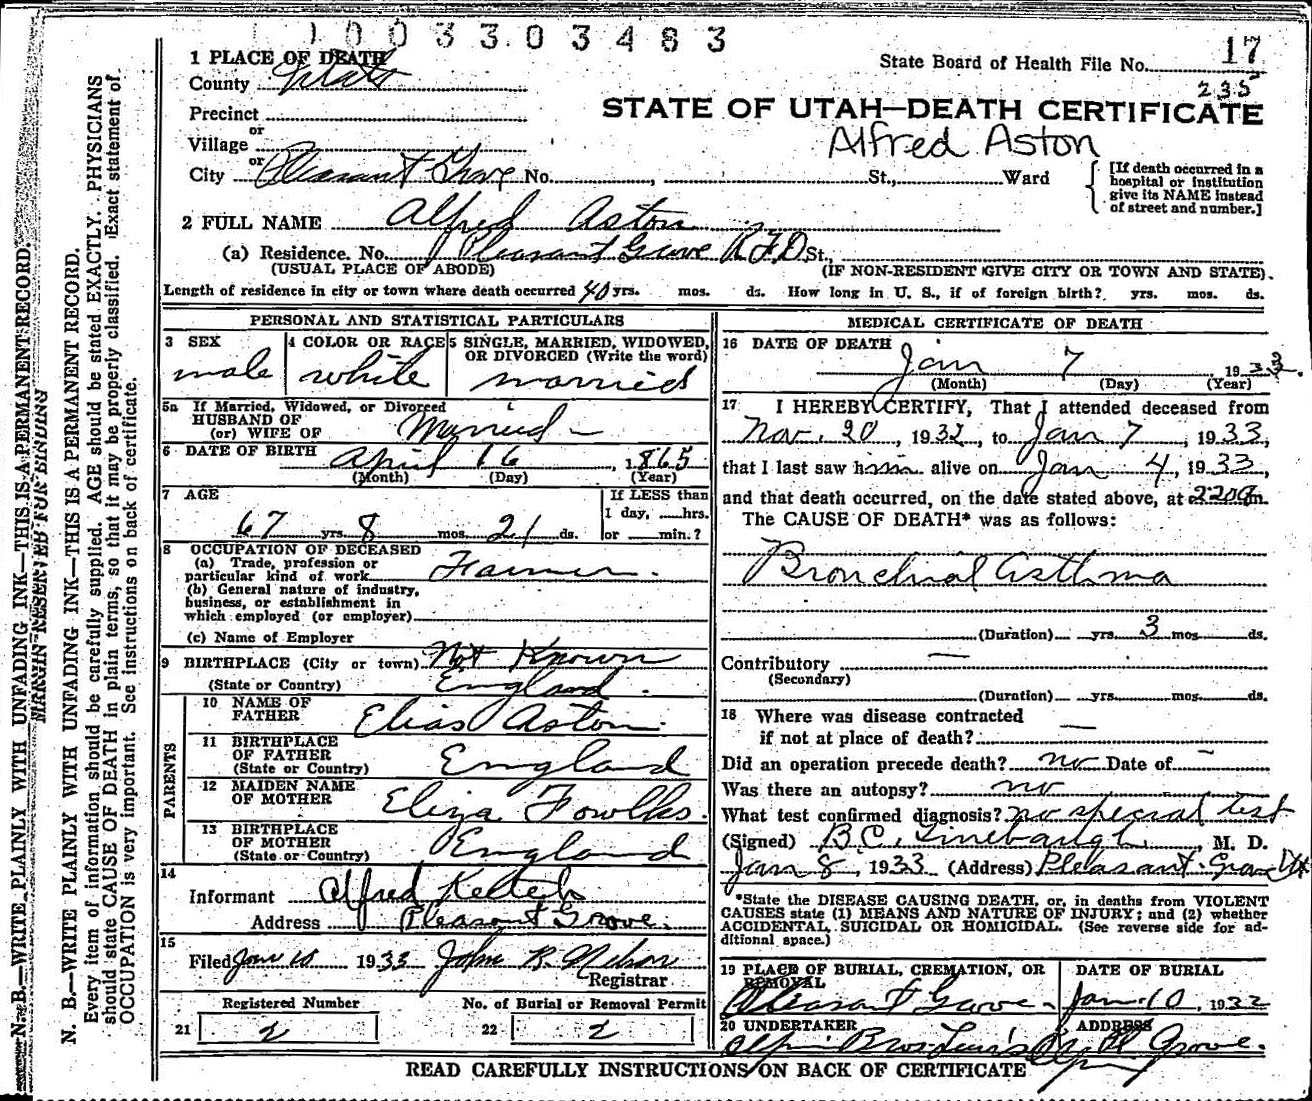 1003303483
1 PLACE OF DEATH
County Utah
State Board of Health File No. 17
235
Precinct
or
Village
or
City Pleasant Grove No. , St., Ward
STATE OF UTAH—DEATH CERTIFICATE
Alfred Aston
[If death occurred in a
hospital or institution
give its NAME instead
of street and number.]
2 FULL NAME Alfred Aston
(a) Residence. No. Pleasant Grove R.F.D St.,
(USUAL PLACE OF ABODE) (IF NON-RESIDENT GIVE CITY OR TOWN AND STATE).
Length of residence in city or town where death occurred 40 yrs. mos. ds. How long in U. S., if of foreign birth? yrs. mos. ds.
PERSONAL AND STATISTICAL PARTICULARS
3 SEX
male
4 COLOR OR RACE
white
5 SINGLE, MARRIED, WIDOWED,
OR DIVORCED (Write the word)
married
5a If Married, Widowed, or Divorced
HUSBAND OF
(or) WIFE OF Married —
6 DATE OF BIRTH April 16, 1865
(Month) (Day) (Year)
7 AGE
67 yrs. 8 mos. 21 ds.
If LESS than
1 day, hrs.
or min.?
8 OCCUPATION OF DECEASED
(a) Trade, profession or
particular kind of work Farmer.
(b) General nature of industry,
business, or establishment in
which employed (or employer)
(c) Name of Employer
9 BIRTHPLACE (City or town) Not Known
(State or Country) England.
PARENTS
10 NAME OF
FATHER Elias Aston.
11 BIRTHPLACE
OF FATHER
(State or Country) England
12 MAIDEN NAME
OF MOTHER Eliza Fowlks.
13 BIRTHPLACE
OF MOTHER
(State or Country) England
14
Informant Alfred
Address Pleasant Grove.
15
Filed Jan 10 1933 John B. Nelson
Registrar
Registered Number
21 2
No. of Burial or Removal Permit
22 2
MEDICAL CERTIFICATE OF DEATH
16 DATE OF DEATH
Jan 7, 1933.
(Month) (Day) (Year)
17 I HEREBY CERTIFY, That I attended deceased from
Nov. 20, 1932, to Jan 7, 1933,
that I last saw him alive on Jan 4, 1933,
and that death occurred, on the date stated above, at 220 m.
The CAUSE OF DEATH* was as follows:
Bronchial asthma
(Duration) yrs. 3 mos. ds.
Contributory —
(Secondary)
(Duration) yrs. mos. ds.
18 Where was disease contracted
if not at place of death? —
Did an operation precede death? no Date of —
Was there an autopsy? no
What test confirmed diagnosis? no special test
(Signed) B.C. Linebaugh, M. D.
Jan 8, 1933 (Address) Pleasant Grove Ut
*State the DISEASE CAUSING DEATH, or, in deaths from VIOLENT
CAUSES state (1) MEANS AND NATURE OF INJURY; and (2) whether
ACCIDENTAL, SUICIDAL OR HOMICIDAL. (See reverse side for ad-
ditional space.)
19 PLACE OF BURIAL, CREMATION, OR
REMOVAL
Pleasant Grove.
DATE OF BURIAL
Jan. 10, 1932
20 UNDERTAKER
Bros.
ADDRESS
Pl Grove.
READ CAREFULLY INSTRUCTIONS ON BACK OF CERTIFICATE
N. B.—WRITE PLAINLY WITH UNFADING INK—THIS IS A PERMANENT RECORD.
MARGIN RESERVED FOR BINDING
N. B.—WRITE PLAINLY WITH UNFADING INK—THIS IS A PERMANENT RECORD.
Every item of information should be carefully supplied. AGE should be stated EXACTLY. PHYSICIANS
should state CAUSE OF DEATH in plain terms, so that it may be properly classified. Exact statement of
OCCUPATION is very important. See instructions on back of certificate.